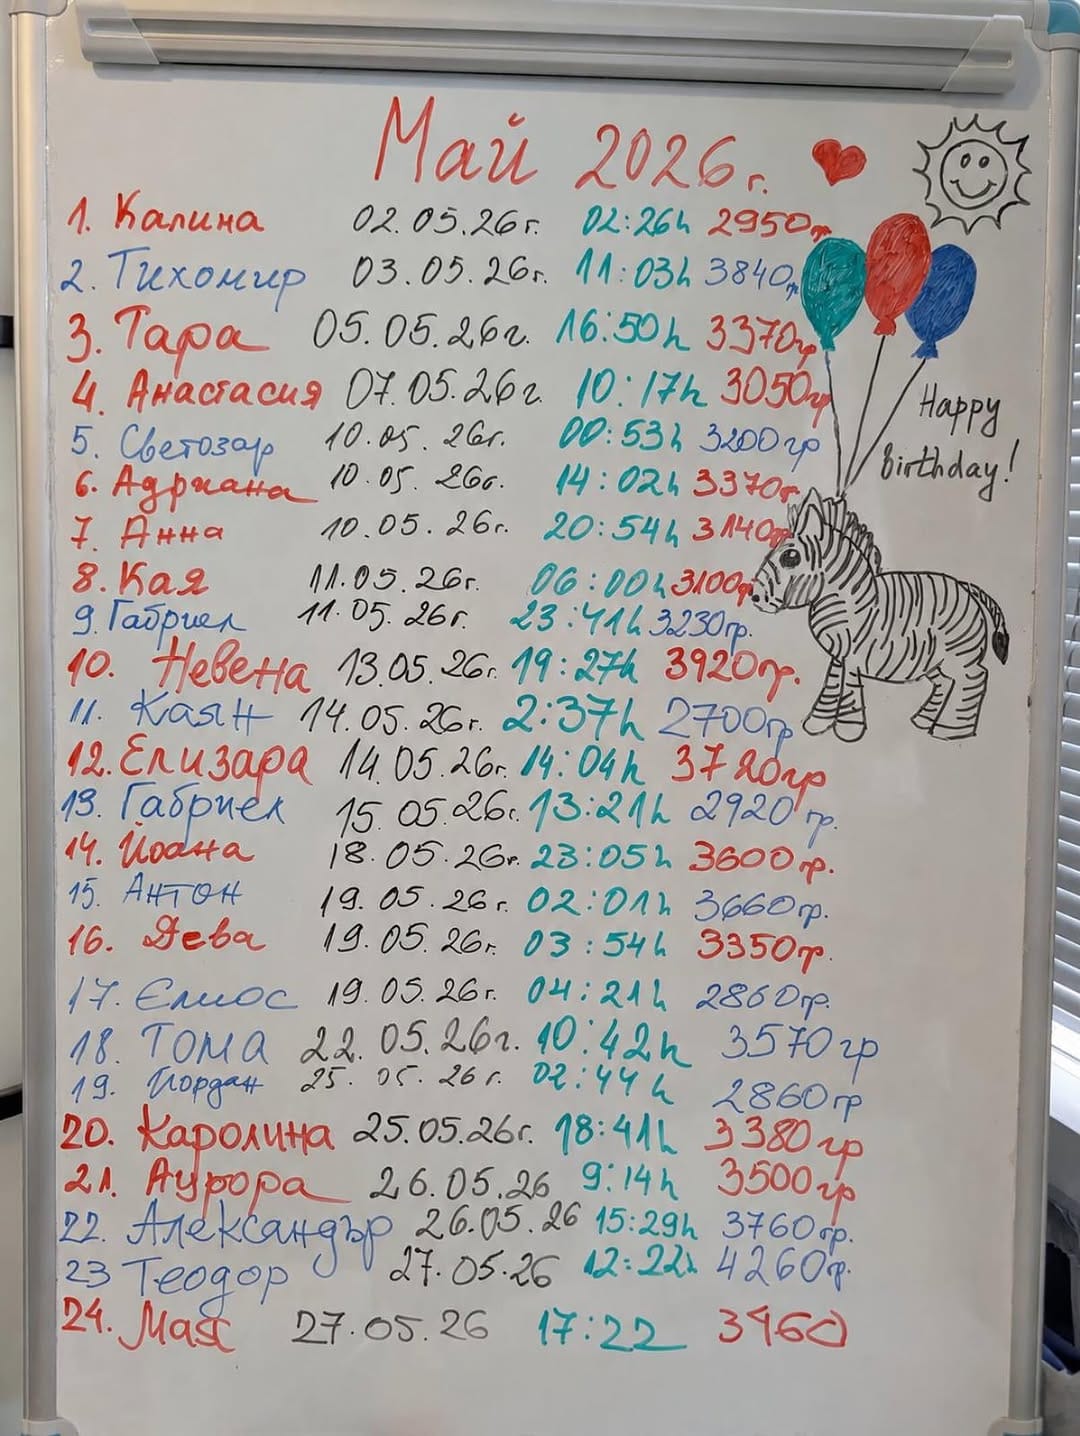 Май 2026г.
1. Калина 02.05.26г. 02:26h 2950гр
2. Тихомир 03.05.26г. 11:03h 3840гр
3. Тара 05.05.26г. 16:50h 3370гр
4. Анастасия 07.05.26г. 10:17h 3050гр
Happy
5. Светозар 10.05.26г. 00:53h 3200гр
Birthday!
6. Адриана 10.05.26г. 14:02h 3370гр
7. Анна 10.05.26г. 20:54h 3140гр
8. Кая 11.05.26г. 06:00h 3100гр
9. Габриел 11.05.26г. 23:41h 3230гр.
10. Невена 13.05.26г. 19:27h 3920гр.
11. Каян 14.05.26г. 2:37h 2700гр
12. Елизара 14.05.26г. 14:04h 3720гр
13. Габриел 15.05.26г. 13:21h 2920гр.
14. Йоана 18.05.26г. 23:05h 3600гр.
15. Антон 19.05.26г. 02:01h 3660гр.
16. Дева 19.05.26г. 03:54h 3350гр.
17. Елиос 19.05.26г. 04:21h 2860гр.
18. Тома 22.05.26г. 10:42h 3570гр
19. Йордан 25.05.26г. 02:44h 2860гр
20. Каролина 25.05.26г. 18:41h 3380гр
21. Аурора 26.05.26 9:14h 3500гр
22. Александър 26.05.26 15:29h 3760гр.
23 Теодор 27.05.26 12:22h 4260гр.
24. Мая 27.05.26 17:22 3460